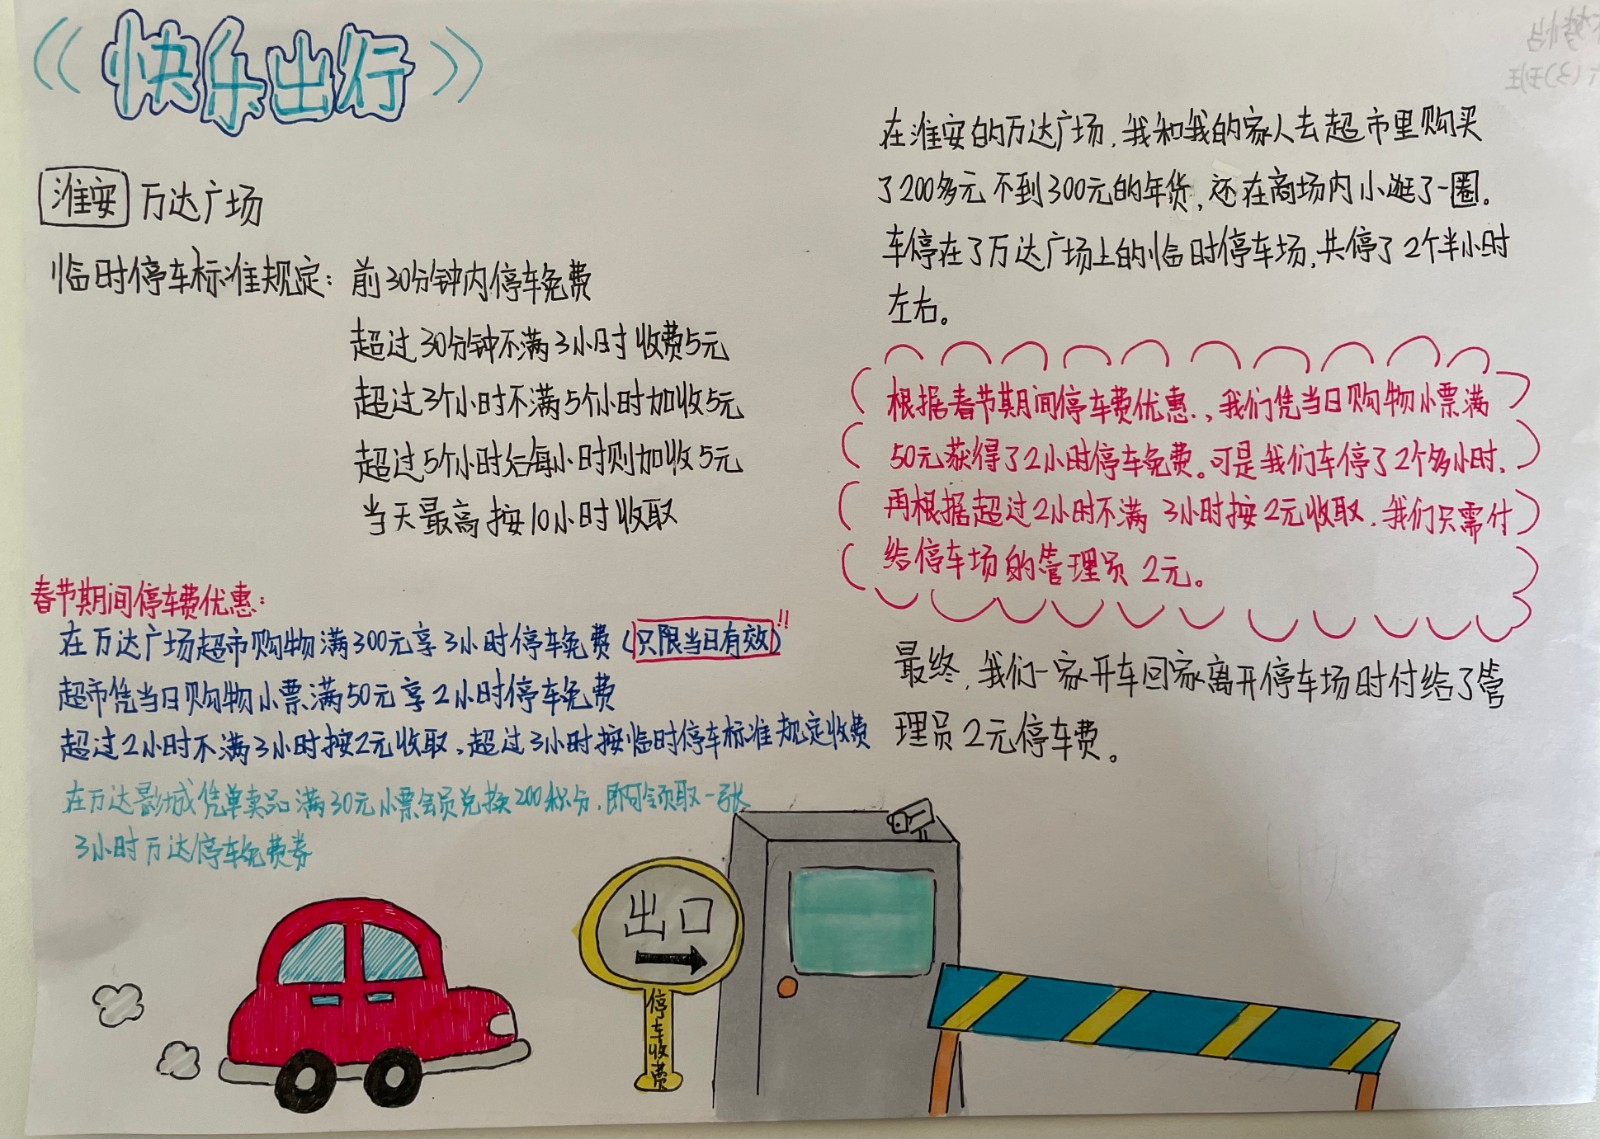 快乐出行
淮安 万达广场
临时停车标准规定：前30分钟内停车免费
超过30分钟不满3小时收费5元
超过3个小时不满5个小时加收5元
超过5个小时后每小时则加收5元
当天最高按10小时收取
春节期间停车费优惠：
在万达广场超市购物满300元享3小时停车免费（只限当日有效）!!
超市凭当日购物小票满50元享2小时停车免费
超过2小时不满3小时按2元收取，超过3小时按临时停车标准规定收费
在万达影城凭单卖品满30元小票会员兑换200积分，即可领取一张
3小时万达停车免费券
在淮安的万达广场，我和我的家人去超市里购买
了200多元不到300元的年货，还在商场内小逛了一圈。
车停在了万达广场上的临时停车场，共停了2个半小时
左右。
根据春节期间停车费优惠，我们凭当日购物小票满
50元获得了2小时停车免费。可是我们车停了2个多小时，
再根据超过2小时不满3小时按2元收取，我们只需付
给停车场的管理员2元。
最终，我们一家开车回家离开停车场时付给了管
理员2元停车费。
出口
停车收费